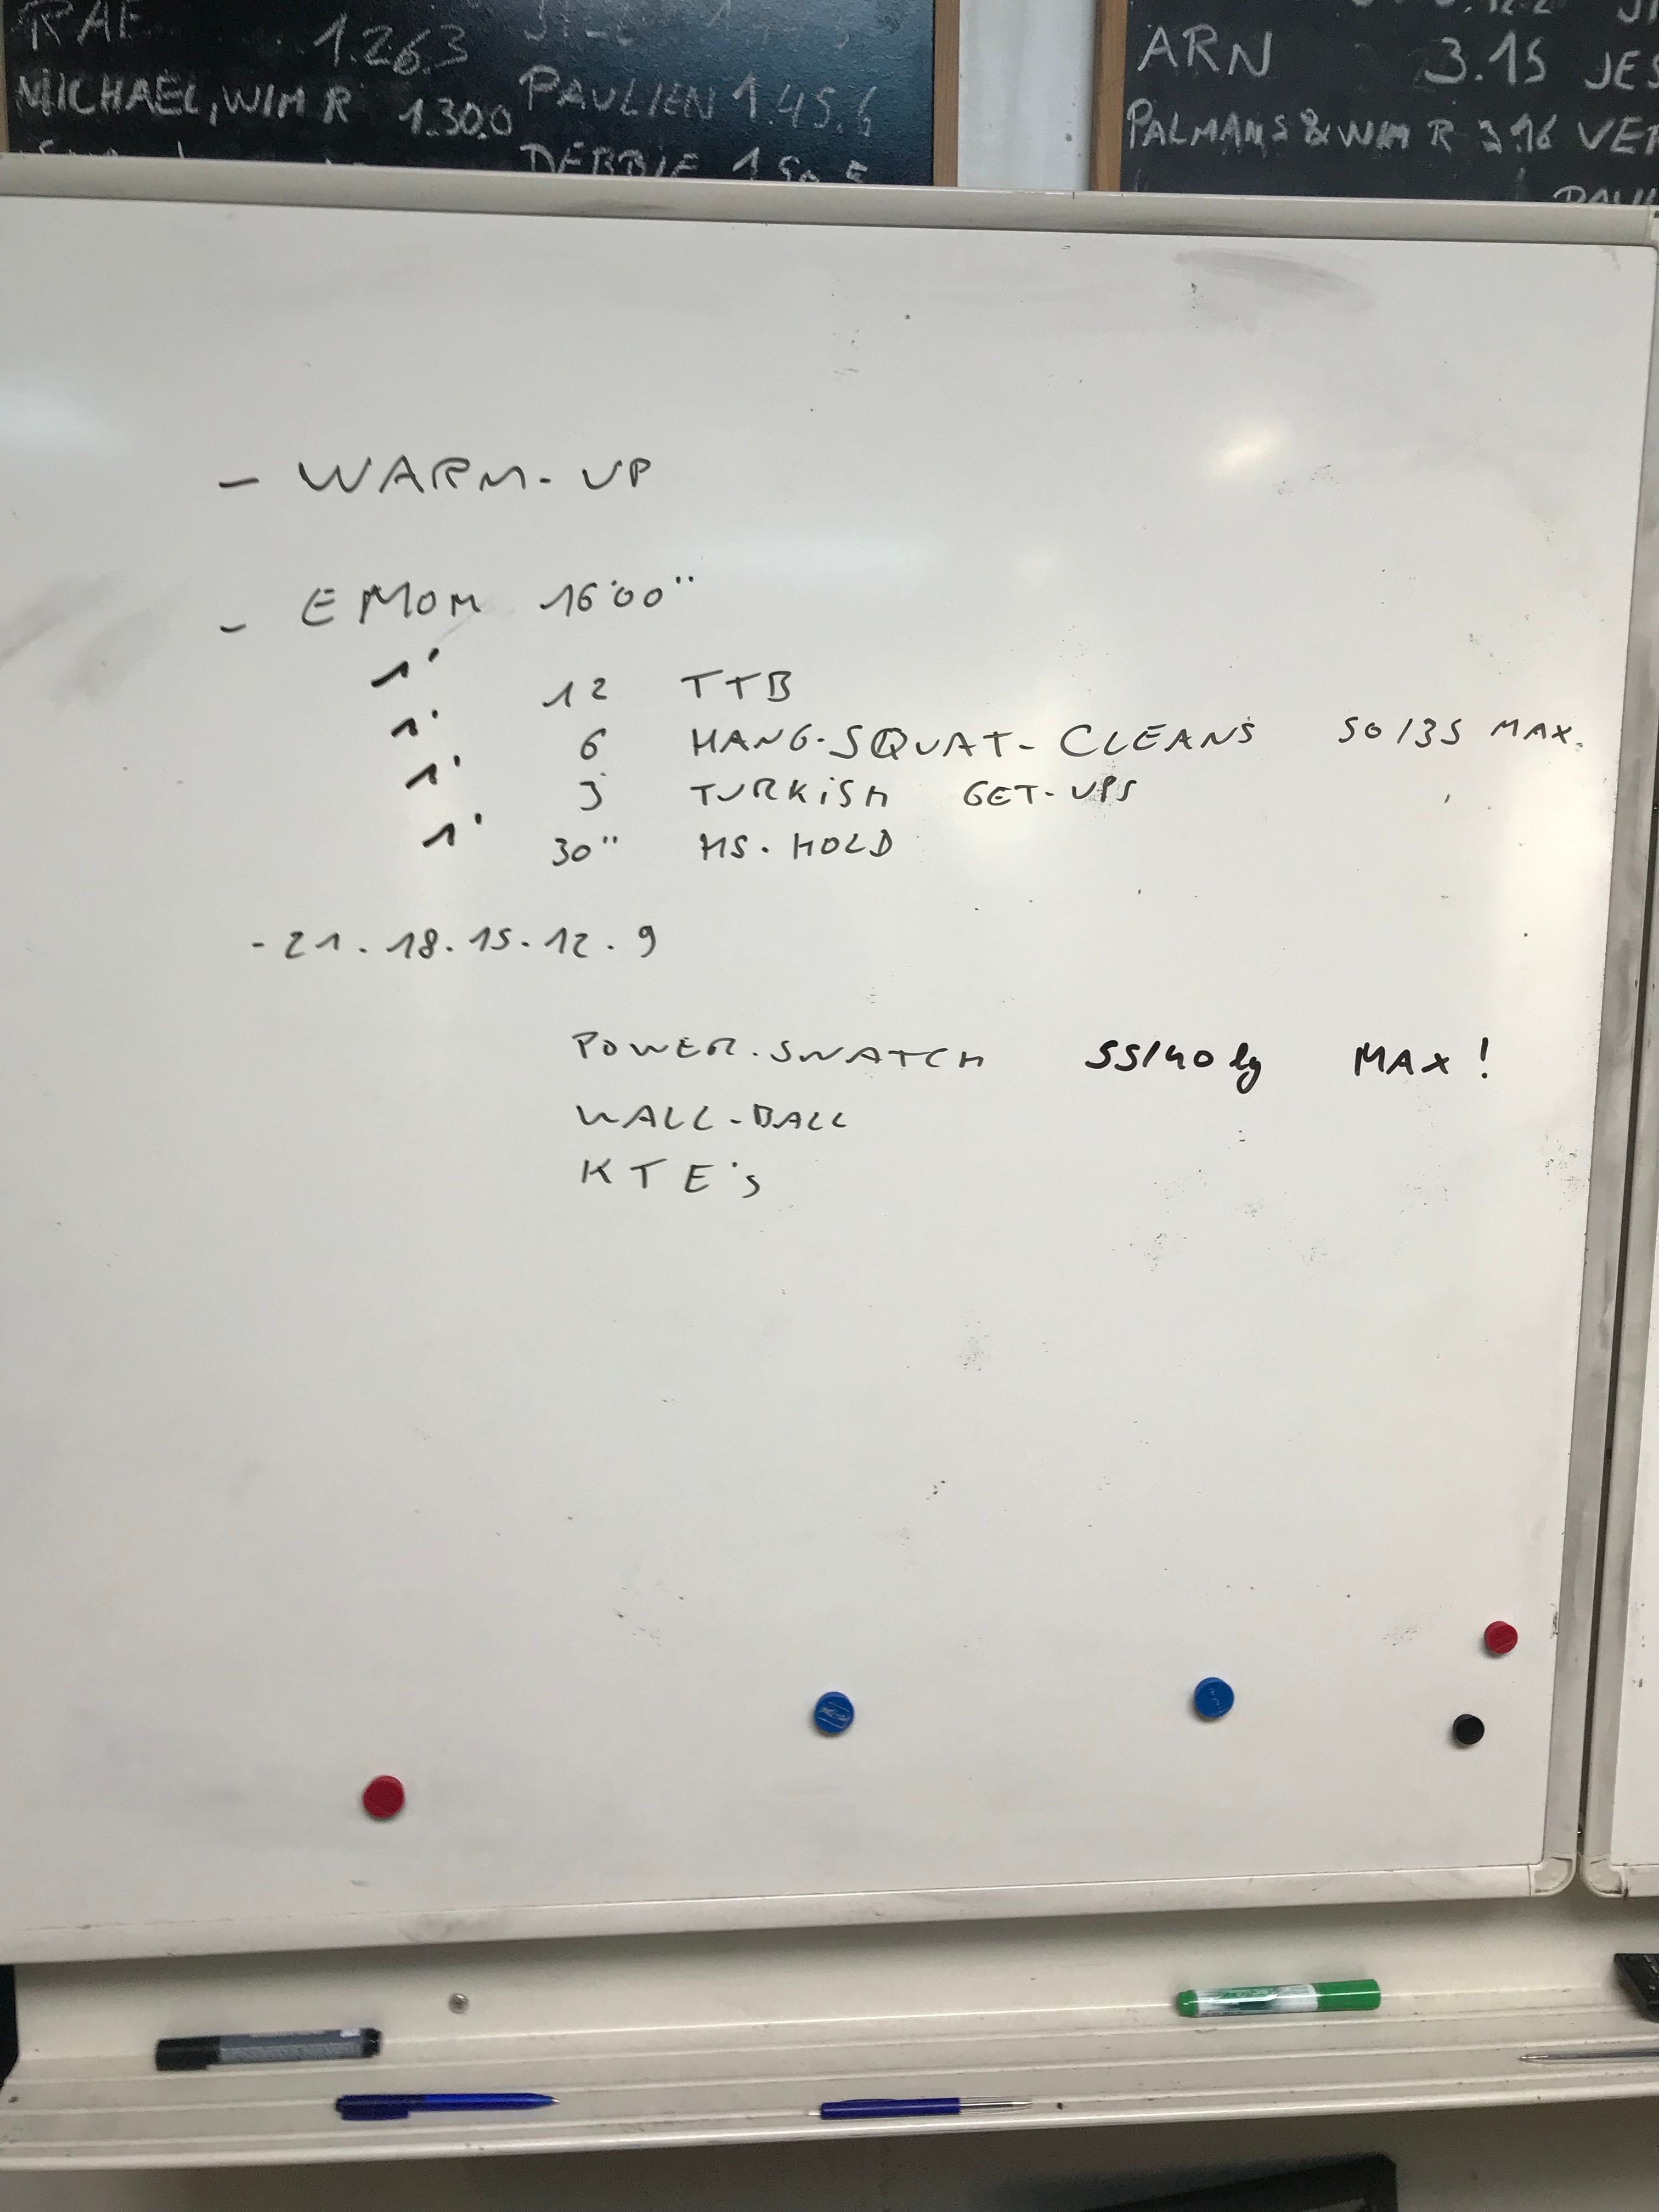 RAE 1.26.3
MICHAEL, WIM R 1.30.0 PAULIEN 1.45.6
DEBBIE
ARN 3.15 JES
PALMANS & WIM R 3.16 VER
- WARM-UP
- EMOM 16'00"
1' 12 TTB
1' 6 HANG-SQUAT-CLEANS 50/35 MAX.
1' 3 TURKISH GET-UPS
1' 30" HS. HOLD
- 21. 18. 15. 12. 9
POWER-SNATCH 55/40 kg MAX!
WALL-BALL
KTE's